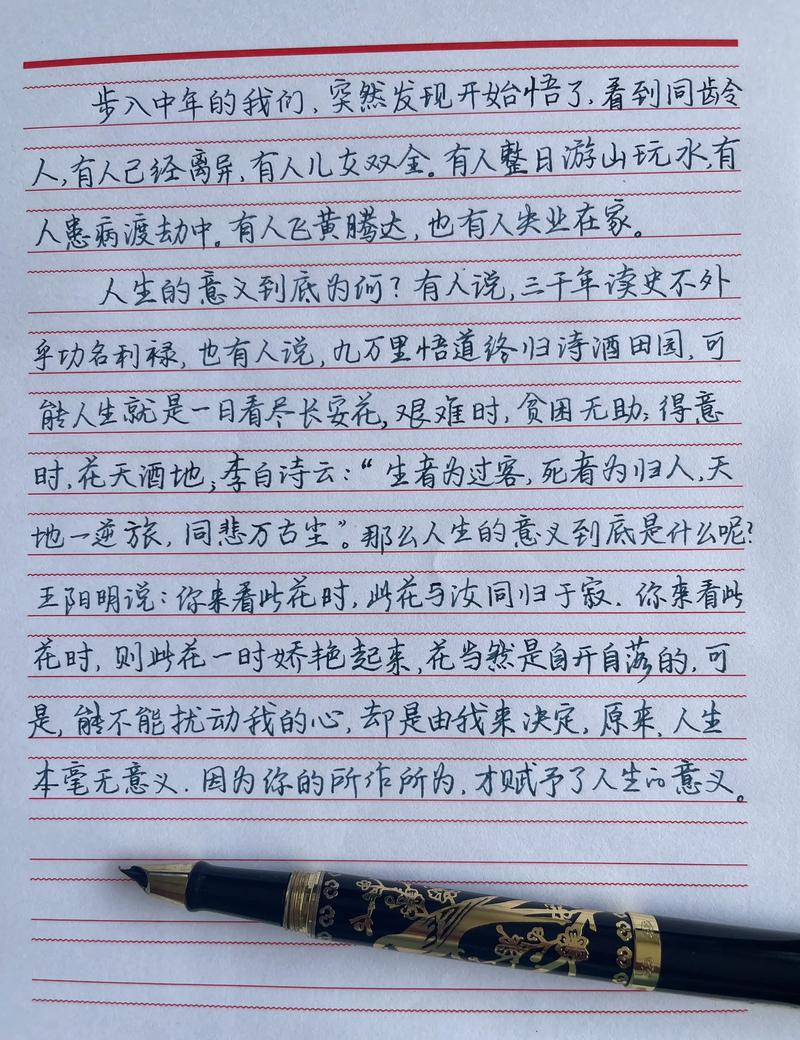 步入中年的我们，突然发现开始悟了，看到同龄
人，有人已经离异，有人儿女双全。有人整日游山玩水，有
人患病渡劫中。有人飞黄腾达，也有人失业在家。
人生的意义到底为何？有人说，三千年读史不外
乎功名利禄，也有人说，九万里悟道终归诗酒田园，可
能人生就是一日看尽长安花，艰难时，贫困无助；得意
时，花天酒地；李白诗云：“生者为过客，死者为归人，天
地一逆旅，同悲万古尘”。那么人生的意义到底是什么呢？
王阳明说：你未看此花时，此花与汝同归于寂．你来看此
花时，则此花一时娇艳起来，花当然是自开自落的，可
是，能不能扰动我的心，却是由我来决定，原来，人生
本毫无意义．因为你的所作所为，才赋予了人生的意义。